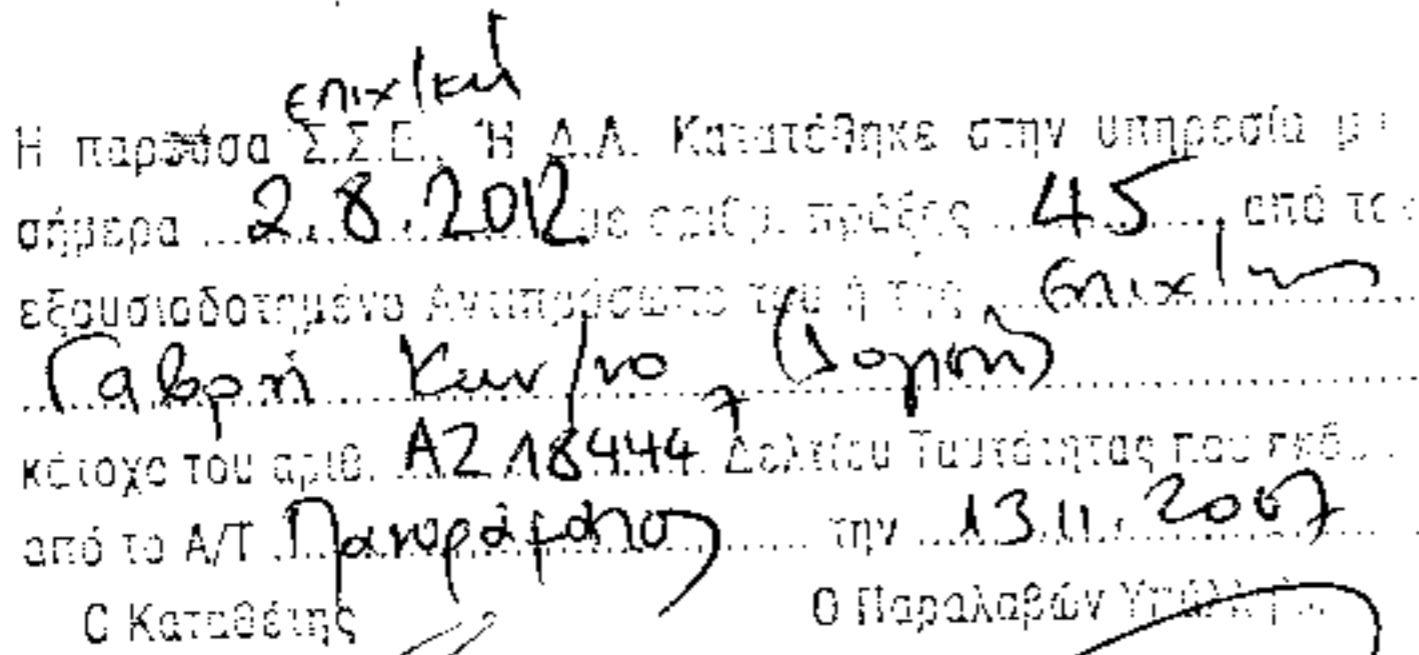 επιχ/κή
Η παρούσα Σ.Σ.Ε., Ή Δ.Α. Κατατέθηκε στην υπηρεσία μα
σήμερα 2.8.2012 με αριθμ. πράξης 45, από το
εξουσιοδοτημένο Αντιπρόσωπο του ή της επιχ/
Γαβρή Κων/νο (Λογιστή)
κάτοχο του αριθ. ΑΖ 184447 Δελτίου Ταυτότητας που εκδ
από το Α/Τ Πανοράματος την 13.11.2007
Ο Καταθέτης Ο Παραλαβών Υπάλλη